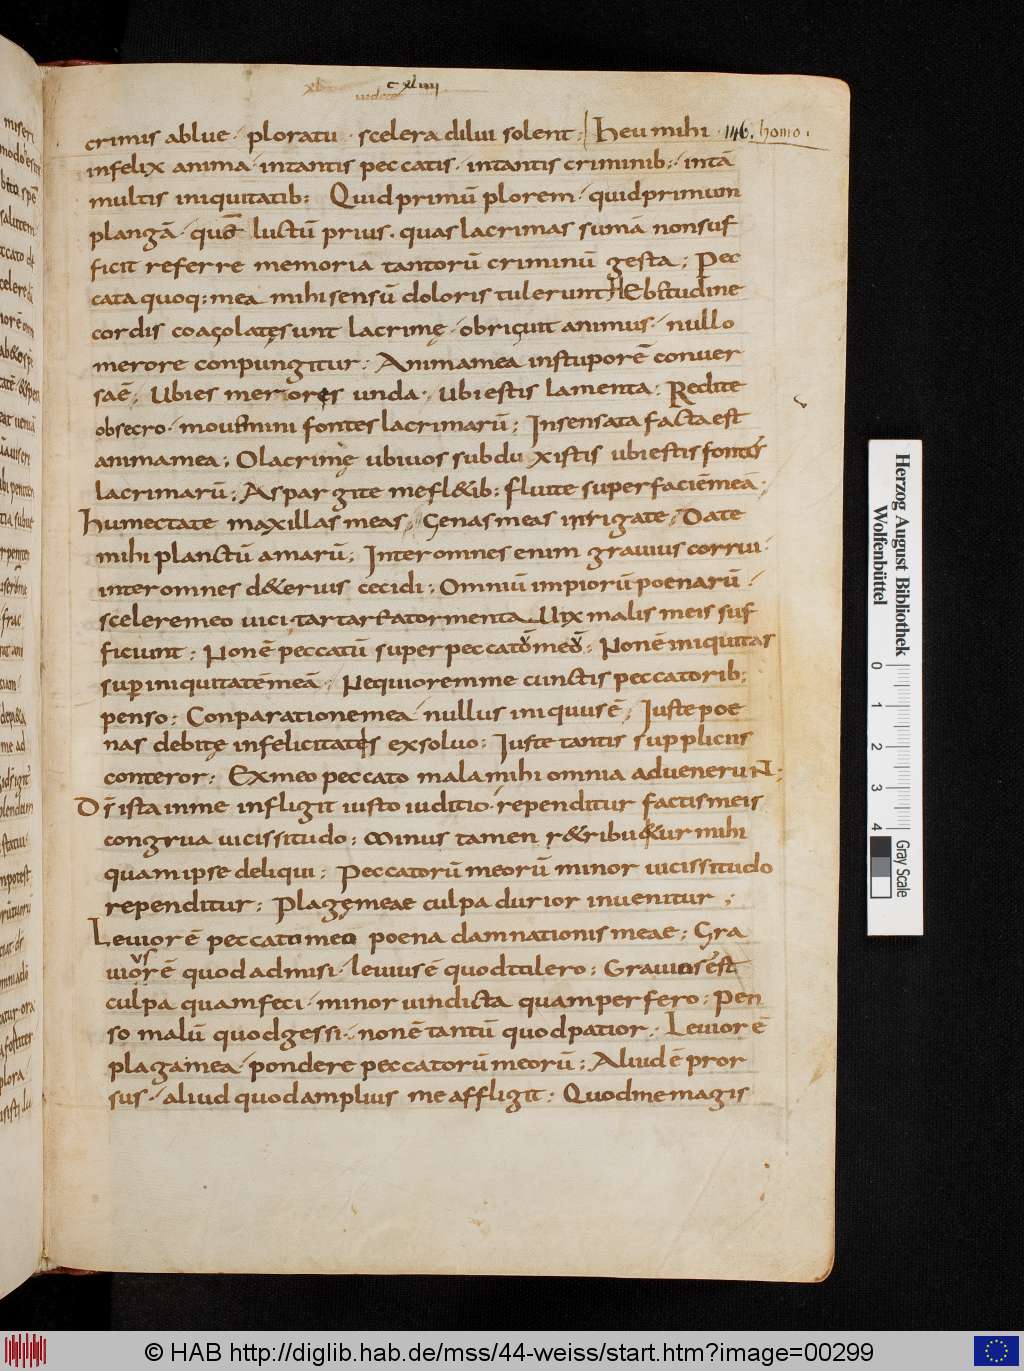 cxliiii
crimis ablue · ploratu · scelera dilui solent : Heu mihi · 146. homo ·
infelix anima · intantis peccatis · intantis criminib: · intā
multis iniquitatib: Quid primū plorem · quid primum
plangā · quē luctū prius · quas lacrimas sumā non suf
ficit referre memoria tantorū criminū gesta ; Pec
cata quoq: mea mihi sensū doloris tulerunt Ebitudine
cordis coaçolatę sunt lacrimę · obriguit animus · nullo
merore conpungitur · Anima mea in stuporē conuer
sa ē ; Ubi es meriores unda · ubi estis lamenta · Redite
obsecro · mouemini fontes lacrimarū ; Insensata facta est
anima mea ; O lacrimę ubi uos subduxistis ubi estis fontes
lacrimarū ; Aspargite me fl&ib: fluite super faciē meā ;
humectate maxillas meas , genas meas inrigate , Date
mihi planctū amarū ; Inter omnes enim grauius corrui ·
inter omnes d&erius cecidi ; Omniū impiorū poenarū ·
scelere meo uici · tartarea tormenta Uix malis meis suf
ficiunt ; Non ē peccatū super peccatū meū ; Non ē iniquitas
sup iniquitatē meā ; Nequiorem me cunctis peccatorib:
penso ; Conparatione mea nullus iniquus ē ; Iuste poe
nas debitę infelicitatis exsoluo ; Iuste tantis suppliciis
conteror ; Ex meo peccato mala mihi omnia aduenerunt ;
Ds ista in me infligit iusto iuditio · rependitur factis meis
congrua uicissitudo ; Minus tamen r&ribu&ur mihi
quam ipse deliqui ; Peccatorū meorū minor uicissitudo
rependitur ; Plagę meae culpa durior inuenitur ;
Leuior ē peccato meo poena damnationis meae ; Gra
uior us ē quod admisi · leuius ē quod tulero ; Grauius est
culpa quam feci · minor uindicta quam perfero ; Pen
so malū quod gessi · non ē tantū quod patior · Leuior ē
plaga mea · pondere peccatorū meorū ; Aliud ē pror
sus · aliud quod amplius me affligit ; Quod me magis
Herzog August Bibliothek
Wolfenbüttel
0 1 2 3 4
Gray Scale
© HAB http://diglib.hab.de/mss/44-weiss/start.htm?image=00299